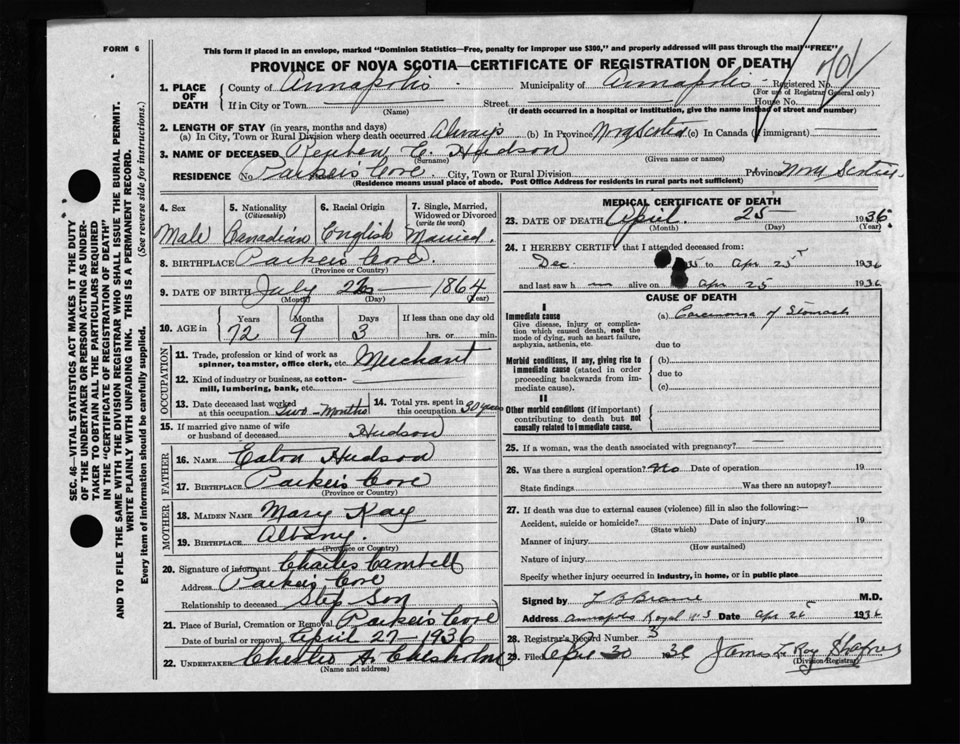 FORM 6
This form if placed in an envelope, marked "Dominion Statistics—Free, penalty for improper use $300," and properly addressed will pass through the mail "FREE"
PROVINCE OF NOVA SCOTIA—CERTIFICATE OF REGISTRATION OF DEATH
1. PLACE OF DEATH
County of Annapolis Municipality of Annapolis Registered No.
(For use of Registrar General only)
If in City or Town Street House No.
(Name) (If death occurred in a hospital or institution, give the name instead of street and number)
2. LENGTH OF STAY (in years, months and days)
(a) In City, Town or Rural Division where death occurred Always (b) In Province Nova Scotia (c) In Canada (if immigrant)
3. NAME OF DECEASED Reuben E. Hudson
(Surname) (Given name or names)
RESIDENCE No Parkers Cove City, Town or Rural Division Province Nova Scotia
(Residence means usual place of abode. Post Office Address for residents in rural parts not sufficient)
4. Sex 5. Nationality (Citizenship) 6. Racial Origin 7. Single, Married, Widowed or Divorced (write the word)
Male Canadian English Married.
8. BIRTHPLACE Parker's Cove.
(Province or Country)
9. DATE OF BIRTH July 1864
(Month) (Day) (Year)
10. AGE in Years Months Days If less than one day old
72 9 3 hrs. or min.
OCCUPATION
11. Trade, profession or kind of work as spinner, teamster, office clerk, etc. Merchant
12. Kind of industry or business, as cotton-mill, lumbering, bank, etc.
13. Date deceased last worked at this occupation Two-Months 14. Total yrs. spent in this occupation 30 years
15. If married give name of wife or husband of deceased Hudson
FATHER
16. NAME Eaton Hudson
17. BIRTHPLACE Parker's Cove
(Province or Country)
MOTHER
18. MAIDEN NAME Mary Kay
19. BIRTHPLACE Albany.
(Province or Country)
20. Signature of informant Charles Cambell
Address Parker's Cove
Relationship to deceased Step Son
21. Place of Burial, Cremation or Removal Parker's Cove
Date of burial or removal April 27-1936
22. UNDERTAKER Chesley A. Chesholm
(Name and address)
MEDICAL CERTIFICATE OF DEATH
23. DATE OF DEATH April 25 1936
(Month) (Day) (Year)
24. I HEREBY CERTIFY that I attended deceased from:
Dec 35 to Apr 25 1936
and last saw h m alive on Apr 25 1936
CAUSE OF DEATH
I
Immediate cause (a) Carcinoma of Stomach
Give disease, injury or complication which caused death, not the mode of dying, such as heart failure, asphyxia, asthenia, etc.
due to
Morbid conditions, if any, giving rise to immediate cause (stated in order proceeding backwards from immediate cause).
(b)
due to
(c)
II
Other morbid conditions (if important) contributing to death but not causally related to immediate cause.
25. If a woman, was the death associated with pregnancy?
26. Was there a surgical operation? No Date of operation 19
State findings Was there an autopsy?
27. If death was due to external causes (violence) fill in also the following:—
Accident, suicide or homicide? Date of injury 19
(State which)
Manner of injury
(How sustained)
Nature of injury
Specify whether injury occurred in industry, in home, or in public place
Signed by L B Braine M.D.
Address Annapolis Royal N S Date Apr 26 1936
28. Registrar's Record Number 3
29. Filed April 30 1936 James L Roy Shafner
(Division Registrar)
SEC. 46—VITAL STATISTICS ACT MAKES IT THE DUTY
OF THE UNDERTAKER OR PERSON ACTING AS UNDER-
TAKER TO OBTAIN ALL THE PARTICULARS REQUIRED
IN THE "CERTIFICATE OF REGISTRATION OF DEATH"
AND TO FILE THE SAME WITH THE DIVISION REGISTRAR WHO SHALL ISSUE THE BURIAL PERMIT.
WRITE PLAINLY WITH UNFADING INK. THIS IS A PERMANENT RECORD.
Every item of information should be carefully supplied. (See reverse side for instructions.)